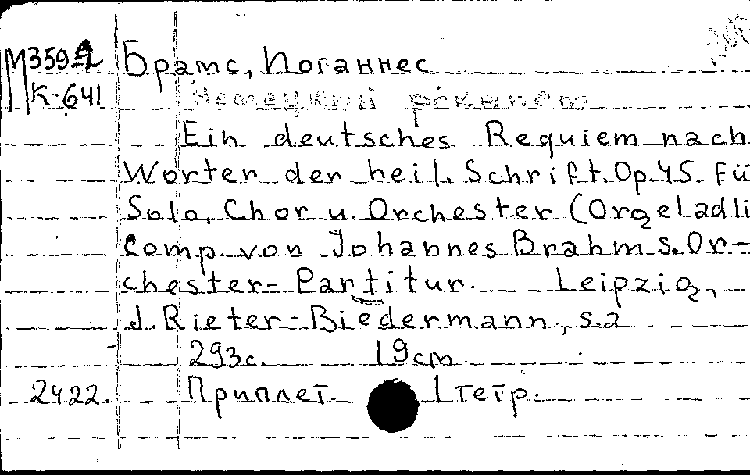 М359 Брамс, Иоганнес
К-641 Немецкий реквием
Ein deutsches Requiem nach
Worten der heil. Schrift. Op. 45. Fü
Solo, Chor u. Orchester (Orgel adli
Comp. von Johannes Brahms. Or-
chester-Partitur. Leipzig,
J. Rieter-Biedermann, s.a
293с. 19cm
2422. Приплет. 1 тетр.